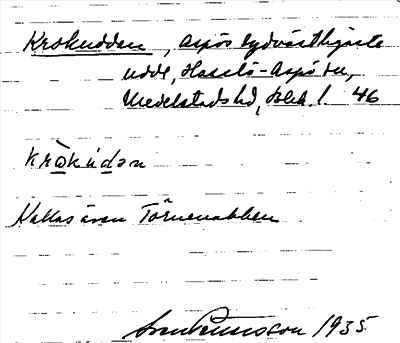 Krokudden, Aspös sydvästligaste
udde, Hasslö-Aspö sn,
Medelstads hd, Blek. l. 46
kròkúdən
Kallas även Törnenabben
Sven Benson 1935